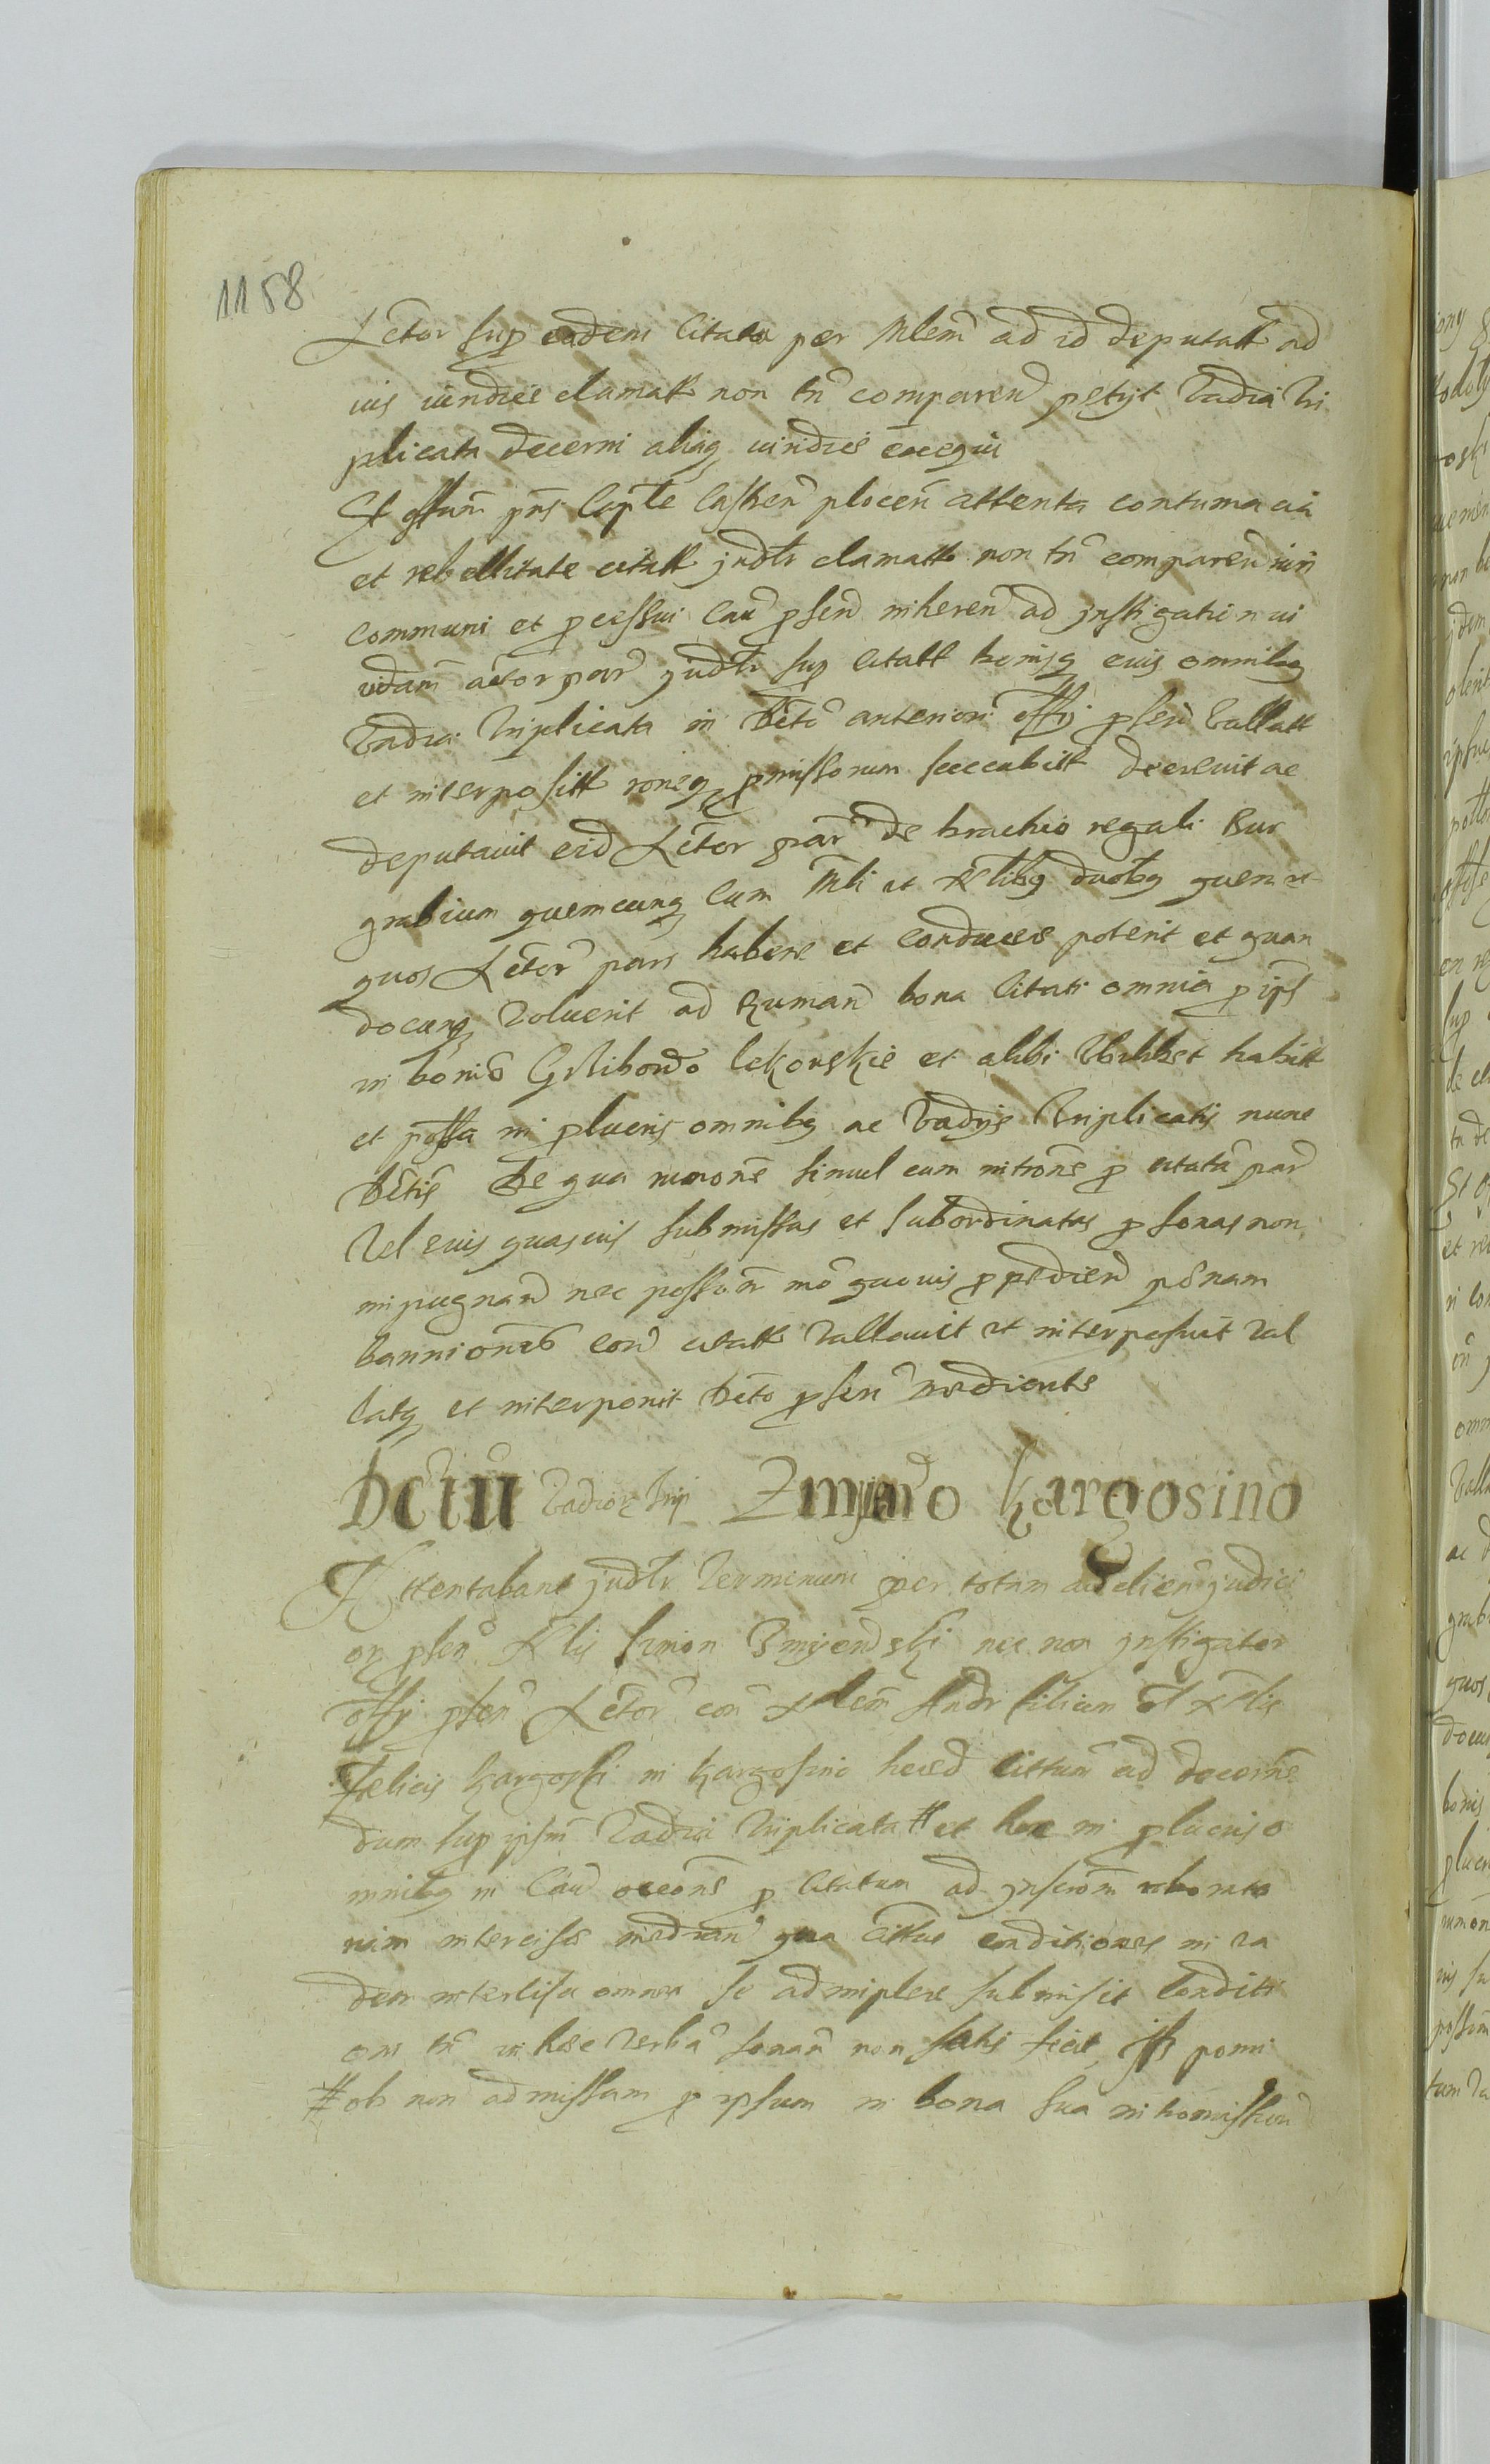 1158
Actor sup eadem Citata per Mlem ad id deputatt ad
ius iuridice clamatt non tn comparen petyt Vadia tri
plicata decerni aliaq iuridice exequi
Et offum pns Capnle Castren plocen attenta contumacia
et rebellitate citatt judlr clamatt non tn comparen iuri
communi et pcessui Cau psen inheren ad instigationem
eidam actor par judlr sup citatt bonisq eius omnibq
Vadia triplicata in decto anteriori offy psen Vallatt
et interpositt roneq pmissorum succubitt decrevit ac
deputavit eid Actor par de brachio regali Bur
grabium quemcunq Cum Mli et Nlibq duobq quem et
quos Actor pars habere et conducere poterit et quan
docunq Voluerit ad bona Citati omnia p ips
in bonis lekowskie et alibi Vbilibet habitt
et possa in plucris omnibq ac Vadys triplicatis nunc
dectis De qua rumone simul cum introne p citata par
Vel eius quasuis submissas et subordinatas psonas non
impugnand nec possum mo quouis ppediend penam
bannionis con citatt Vallavit et interposuit Val
latq et interponit decto psen mediante
Dctu Vador trip Zmijewo Kargosino
Attentabant judlr terminum per totam audelien judici
or psen Nlis Simon Zmijewski nec non instigator
offy psen Actor con Nlem Andr filium ol Nlis
Felicis Kargoski in Kargosino hered Cittum ad decernen
dum sup ipsm Vadia triplicata # et hoc in plucris o
mnibq in Cau occone p Citatum ad roborato
riam intercise median qua Cittus conditiones in ea
dem intercisa omnes se adimplere submisit Conditi
oni tn in hec Verba sonan non satis fecit Is pomi
# ob non admissam p ipsum in bona sua intromission